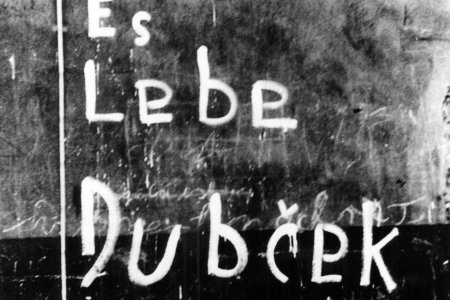 Es
Lebe
Dubček